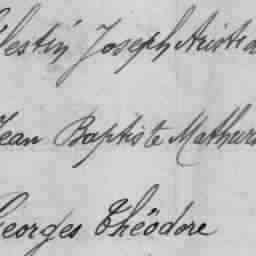 élestin Joseph Aristid
Jean Baptiste Mathuri
Georges Théodore